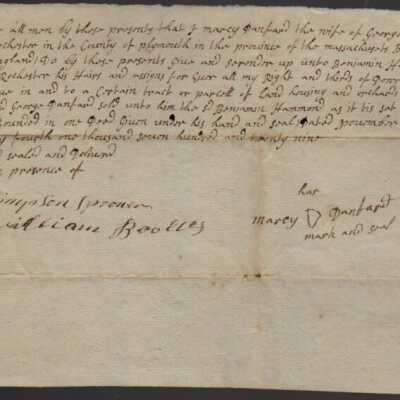 all men by these presents that I marcy Danford the wife of George
Rochester in the County of plymouth in the province of the massachusets B
England Do by these presents Give and serender up unto Benjamin H
Rochester his Hairs and assigns for Ever all my Right and thirds of
in and to a Certain tract or parcell of land housing and orchards
George Danford sold unto him the sd Benjamin Hammond as it is set
Bounded in one Deed Given under his hand and seal Dated november
fourth one thousand seven hundred and twenty nine
sealed and Delivred
presence of
Simpson Spooner
william Boolles
har
marcy Danford
mark and seal